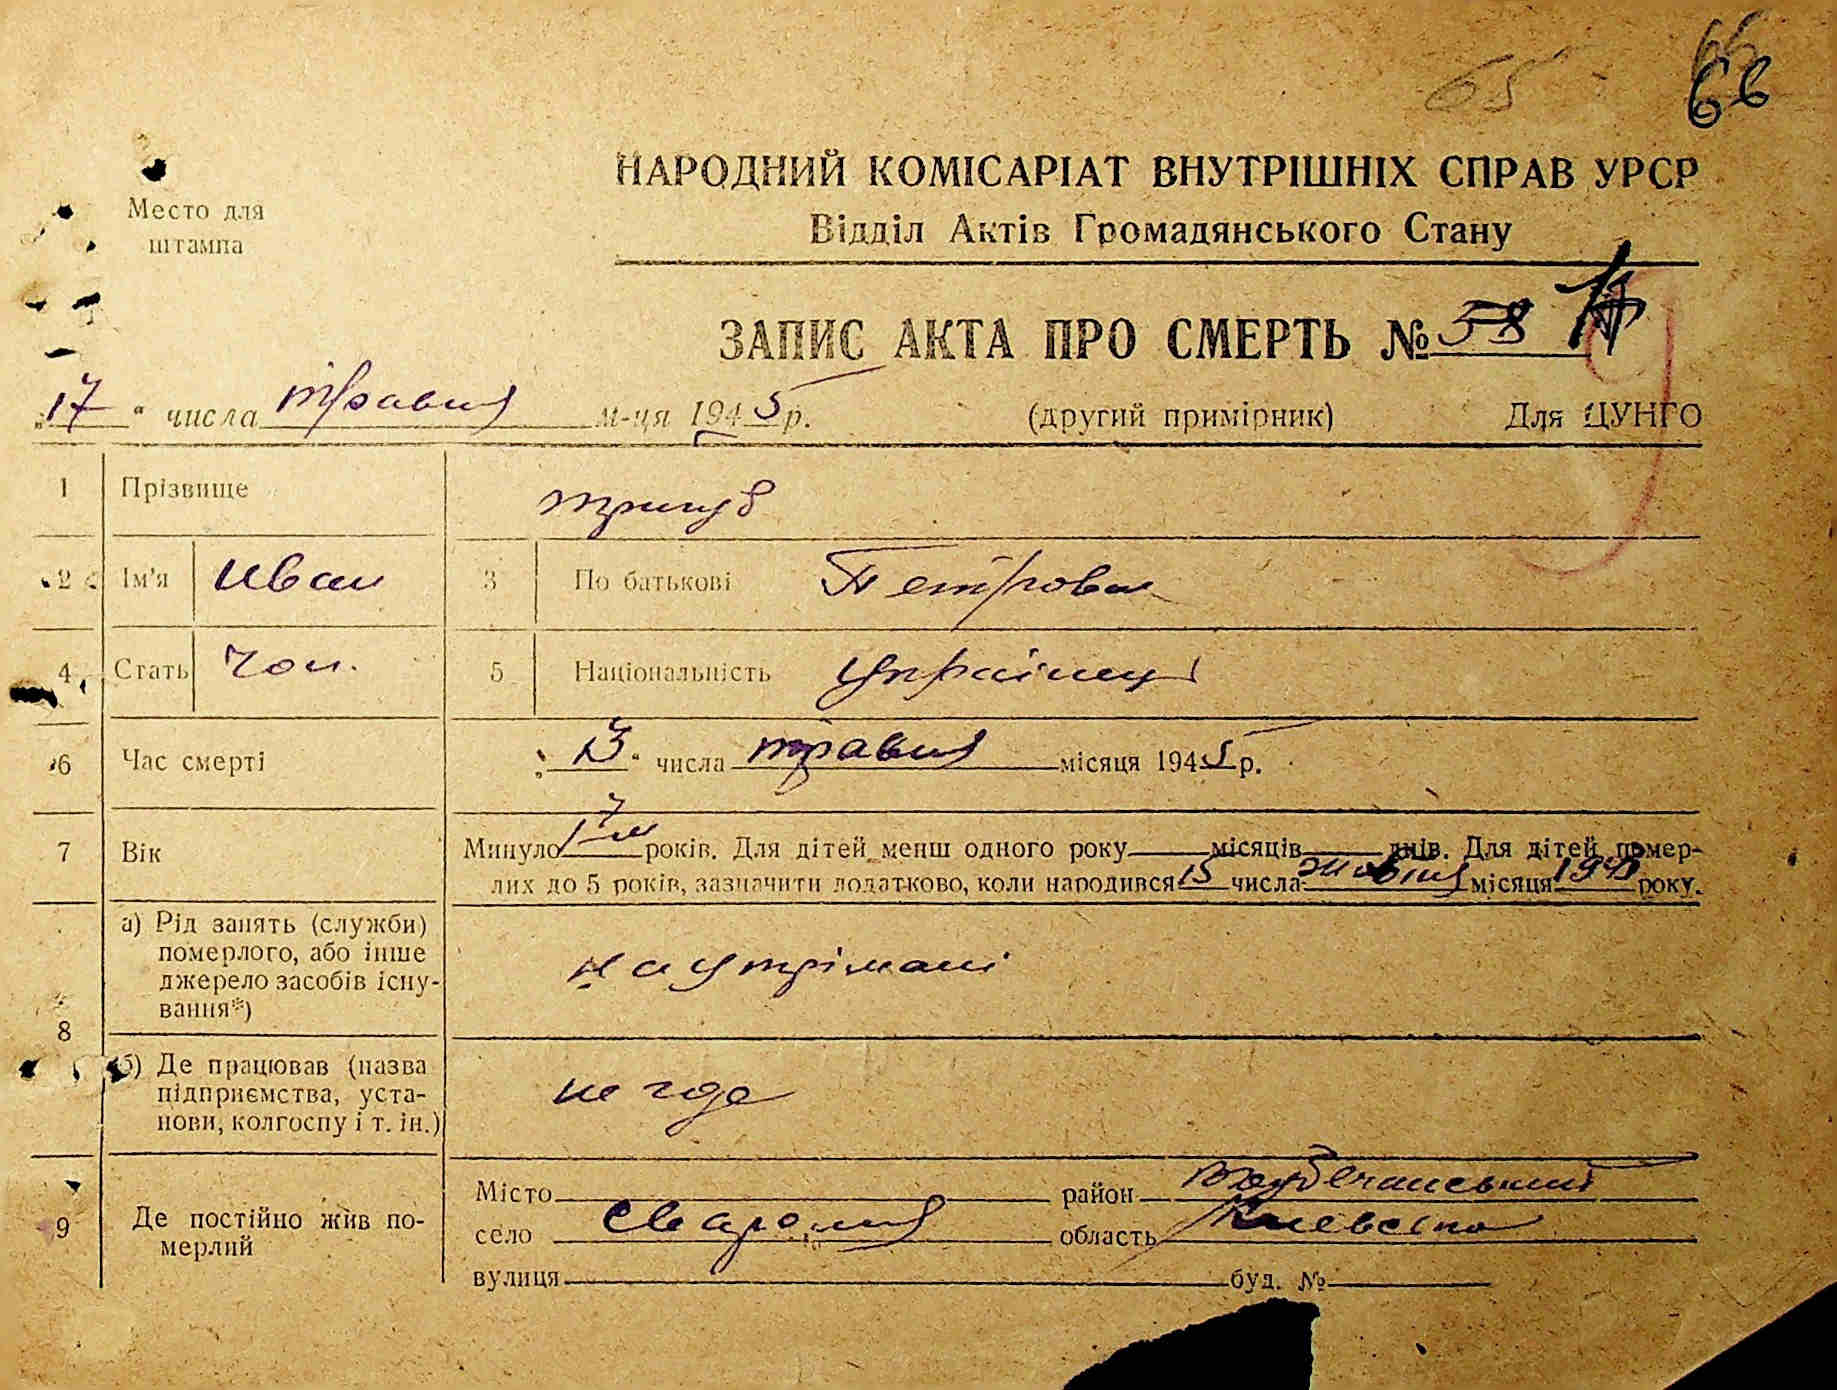 65 66
66
Место для
штампа
НАРОДНИЙ КОМІСАРІАТ ВНУТРІШНІХ СПРАВ УРСР
Відділ Актів Громадянського Стану
ЗАПИС АКТА ПРО СМЕРТЬ № 58
„17“ числа травня м-ця 1945 р. (другий примірник) Для ЦУНГО
1 Прізвище
2 Ім'я Иван 3 По батькові Петрович
4 Стать Чол. 5 Національність Українец
6 Час смерті „13“ числа травня місяця 1945 р.
7 Вік Минуло років. Для дітей менш одного року місяців днів. Для дітей помер-
лих до 5 років, зазначити додатково, коли народився 15 числа жовтня місяця року.
8 а) Рід занять (служби)
померлого, або інше
джерело засобів існу-
вання*)
на утрімані
б) Де працював (назва
підприємства, уста-
нови, колгоспу і т. ін.)
не где
9 Де постійно жив по-
мерлий
Місто район
село Сваромя область Киевська
вулиця буд. №